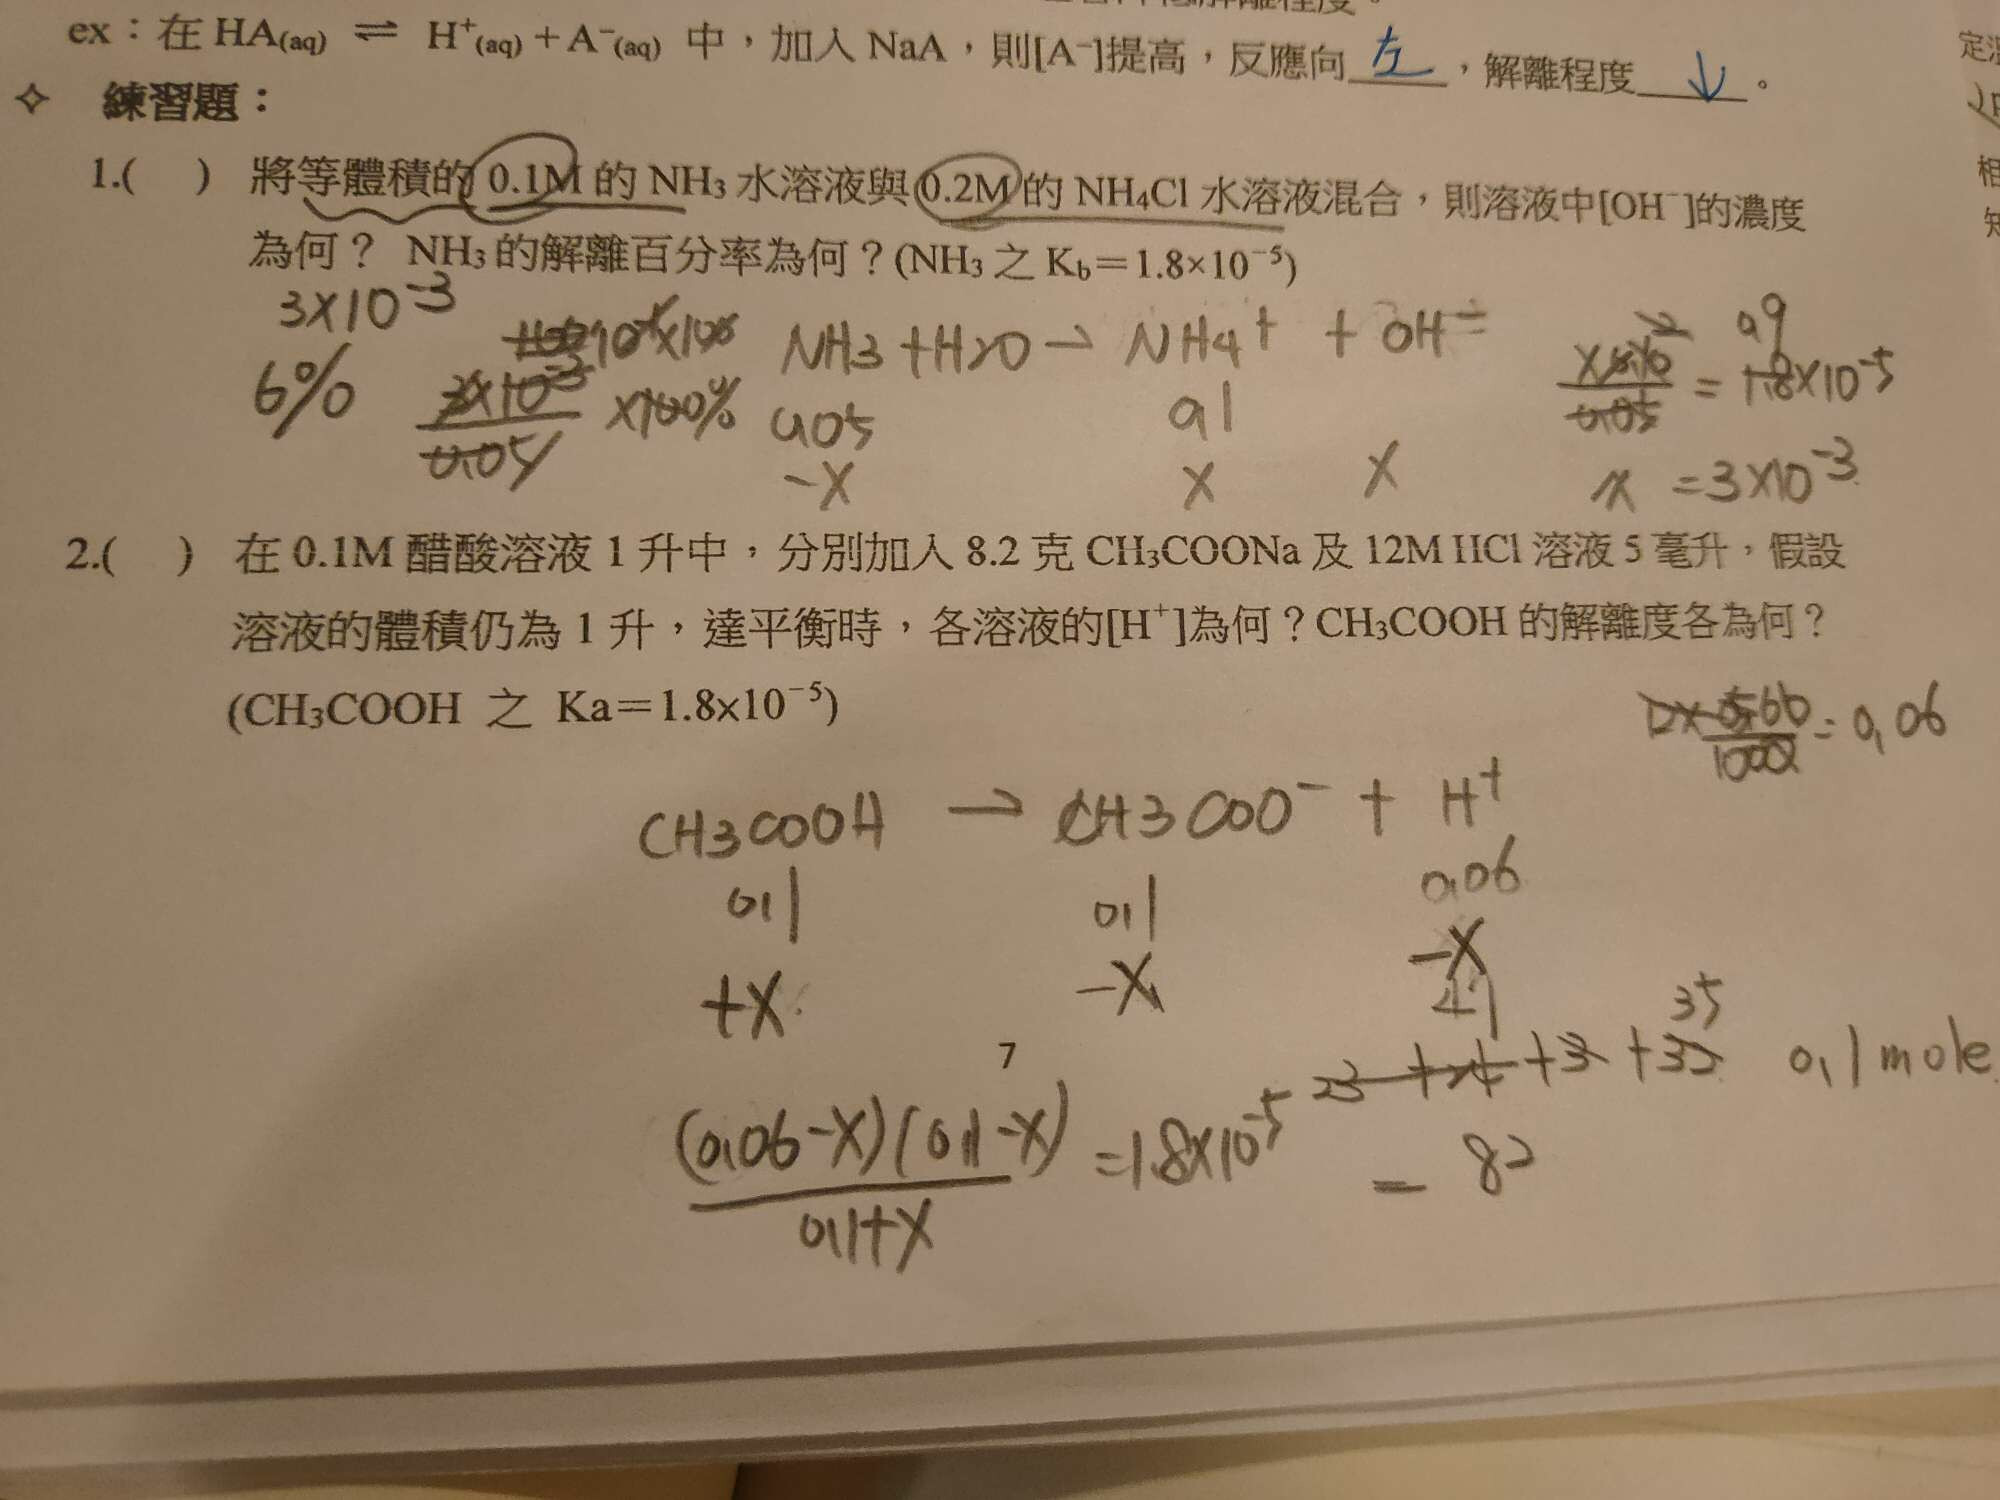 ex：在 HA(aq) ⇌ H⁺(aq) + A⁻(aq) 中，加入 NaA，則[A⁻]提高，反應向 左 ，解離程度 ↓ 。
✧ 練習題：
1.( ) 將等體積的 0.1M 的 NH₃ 水溶液與 0.2M 的 NH₄Cl 水溶液混合，則溶液中[OH⁻]的濃度
為何？ NH₃ 的解離百分率為何？(NH₃ 之 K_b＝1.8×10⁻⁵)
3×10⁻³
6%
×100%
NH3 + H2O → NH4⁺ + OH⁻
0.05 0.1
-X X X
0.05
= 1.8×10⁻⁵
x = 3×10⁻³
2.( ) 在 0.1M 醋酸溶液 1 升中，分別加入 8.2 克 CH₃COONa 及 12M HCl 溶液 5 毫升，假設
溶液的體積仍為 1 升，達平衡時，各溶液的[H⁺]為何？CH₃COOH 的解離度各為何？
(CH₃COOH 之 Ka＝1.8x10⁻⁵)
= 0.06
CH3COOH → CH3COO⁻ + H⁺
0.1 0.1 0.06
+X -X -X
35
7
+3 +32 0.1 mole
(0.06-X)(0.1-X)
= 1.8×10⁻⁵
0.1+X
= 82